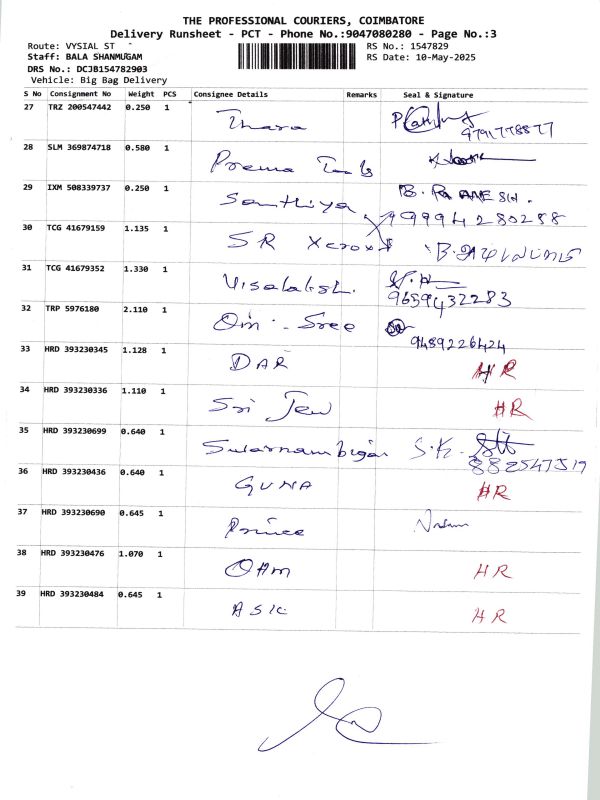 THE PROFESSIONAL COURIERS, COIMBATORE
Delivery Runsheet - PCT - Phone No.:9047080280 - Page No.:3
Route: VYSIAL ST RS No.: 1547829
Staff: BALA SHANMUGAM RS Date: 10-May-2025
DRS No.: DCJB154782903
Vehicle: Big Bag Delivery
S No Consignment No Weight PCS Consignee Details Remarks Seal & Signature
27 TRZ 200547442 0.250 1 Thara
9791778877
28 SLM 369874718 0.580 1 Prema Tools
29 IXM 508339737 0.250 1 Santhiya B. RAMESH.
99994280288
30 TCG 41679159 1.135 1 SR Xerox
31 TCG 41679352 1.330 1 Visalaksh.
9659432283
32 TRP 5976180 2.110 1 Om Sree
9489226424
33 HRD 393230345 1.128 1 DAR HR
34 HRD 393230336 1.110 1 Sri Jew HR
35 HRD 393230699 0.640 1 Swarnambigai S.K.
882547519
36 HRD 393230436 0.640 1 GUNA HR
37 HRD 393230690 0.645 1 Prince
38 HRD 393230476 1.070 1 OAM HR
39 HRD 393230484 0.645 1 ASIC HR